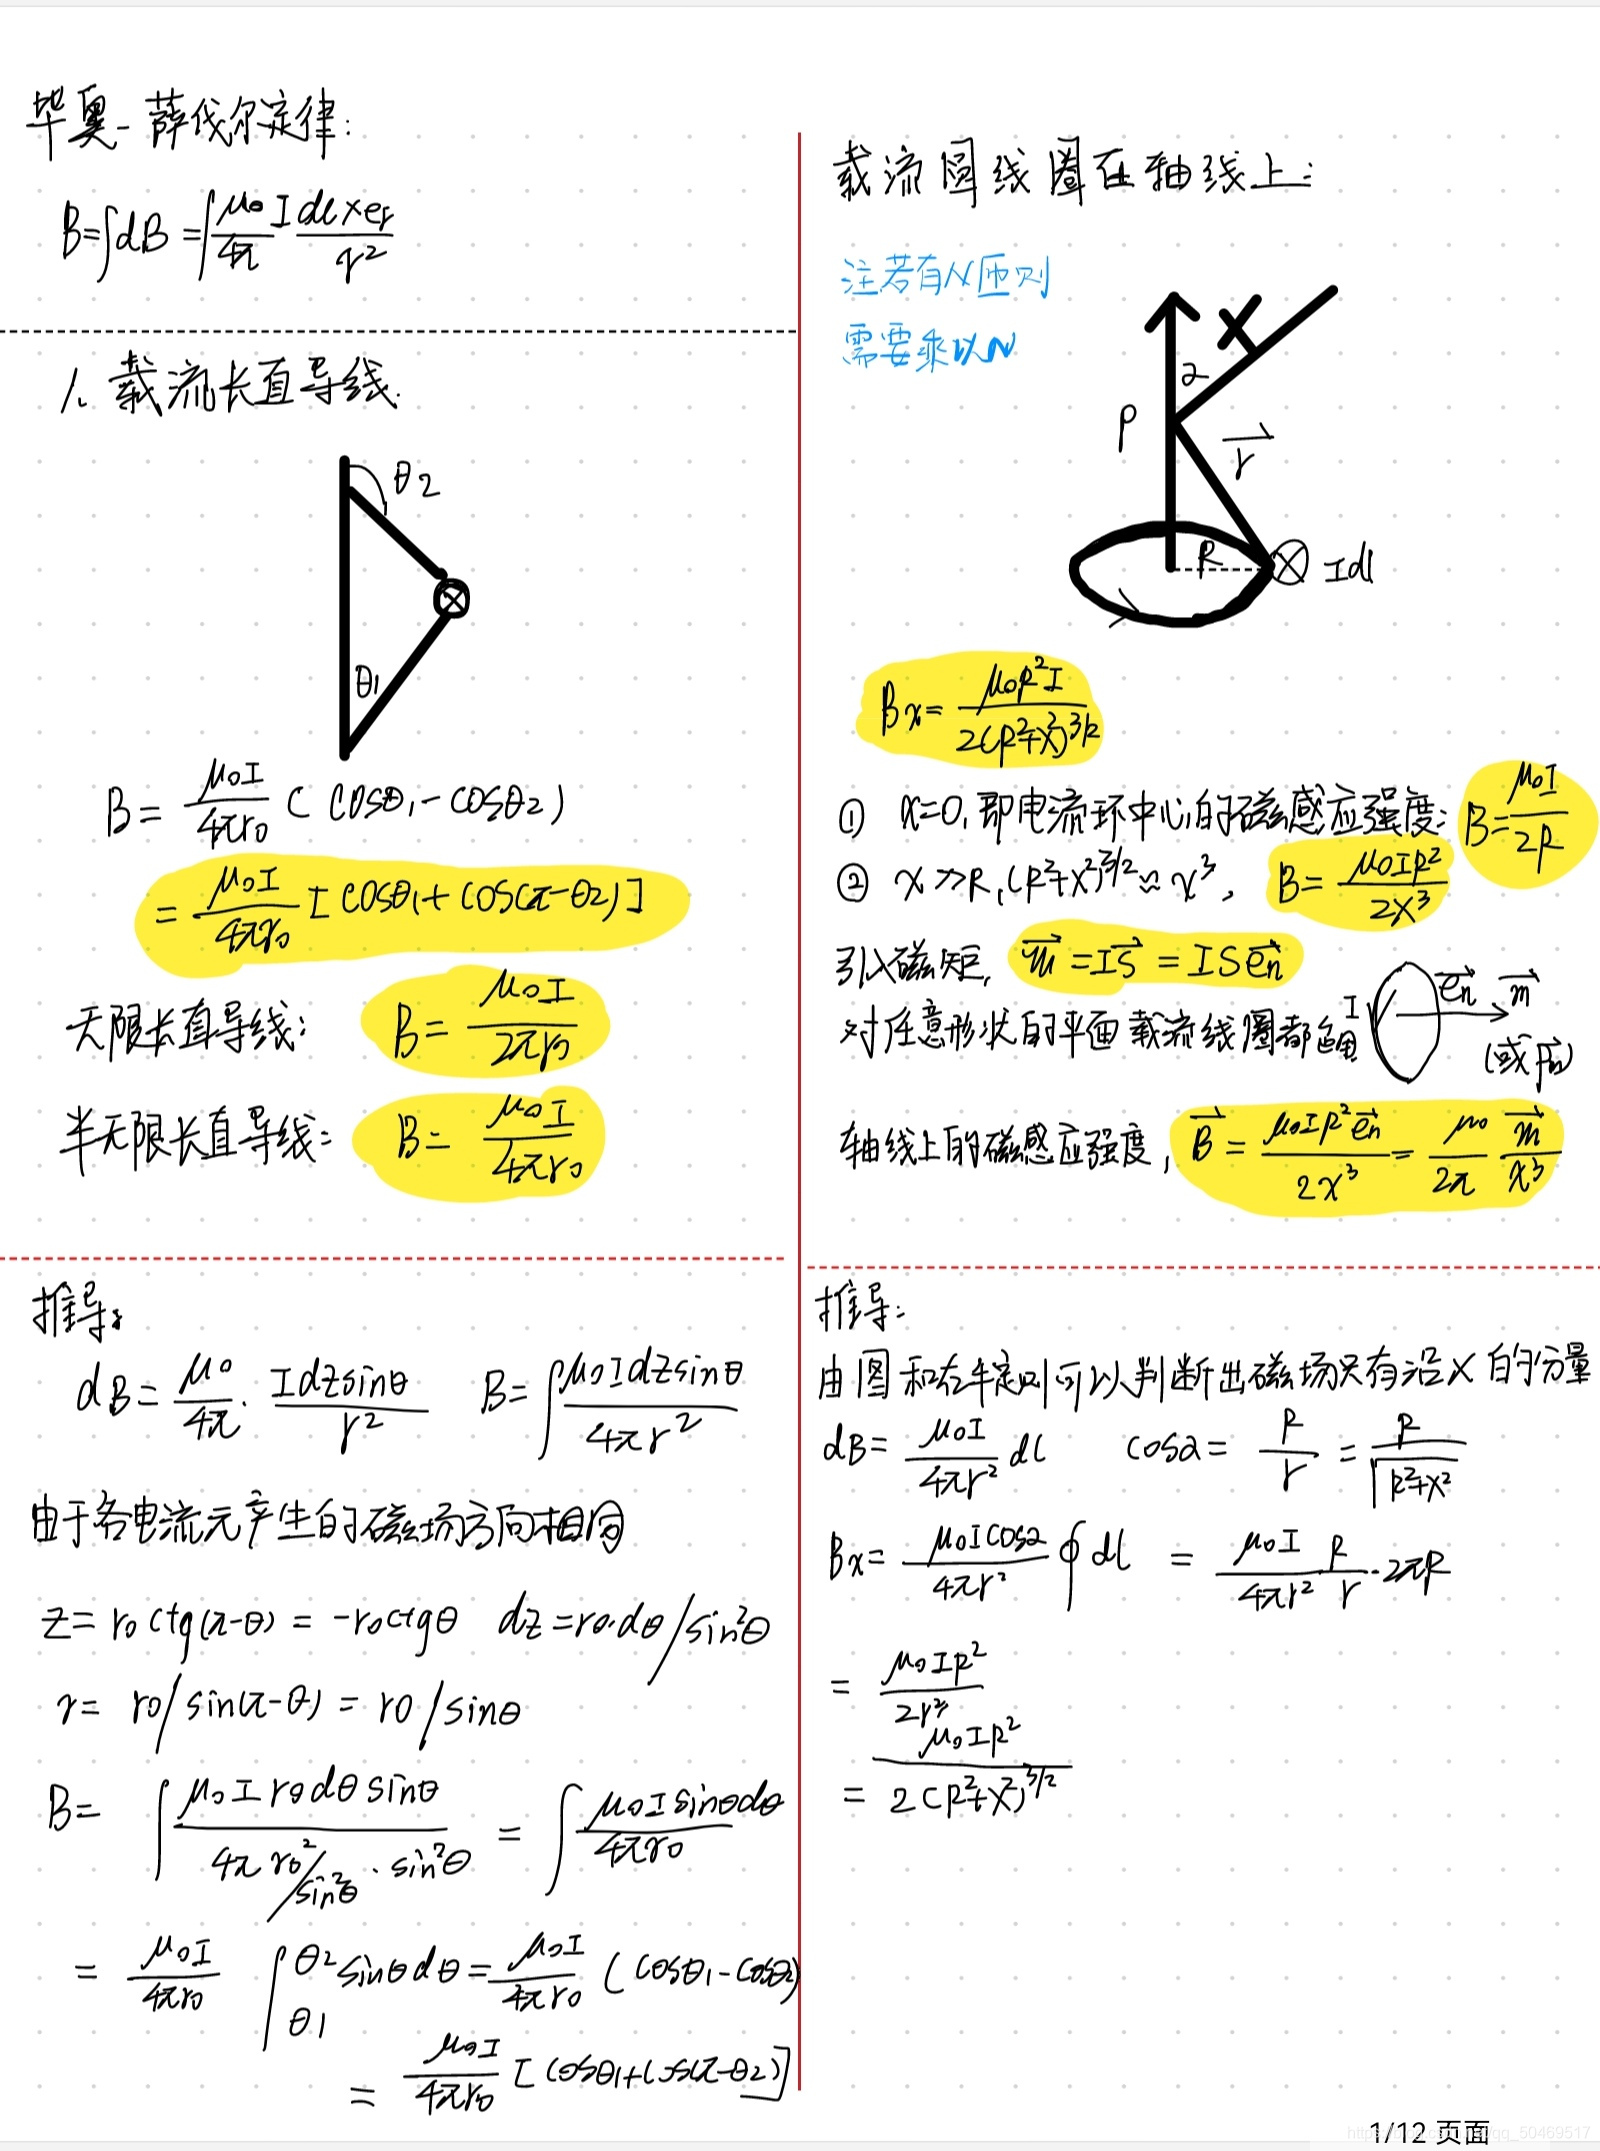 毕奥-萨伐尔定律:
B=∫dB=∫μ₀/4π Idl×er/r²
1、载流长直导线.
θ2
θ1
B= μ₀I/4πr₀ (cosθ₁-cosθ₂)
= μ₀I/4πr₀ [cosθ₁+cos(π-θ₂)]
无限长直导线: B= μ₀I/2πr₀
半无限长直导线: B= μ₀I/4πr₀
推导:
dB= μ₀/4π · Idzsinθ/r² B=∫μ₀Idzsinθ/4πr²
由于各电流元产生的磁场方向相同
z= r₀ctg(π-θ) = -r₀ctgθ dz=r₀·dθ/sin²θ
r= r₀/sin(π-θ) = r₀/sinθ
B= ∫μ₀Ir₀dθsinθ/(4πr₀²/sin²θ · sin²θ) = ∫μ₀Isinθdθ/4πr₀
= μ₀I/4πr₀ ∫θ1 θ2 sinθdθ= μ₀I/4πr₀ (cosθ₁-cosθ₂)
= μ₀I/4πr₀ [cosθ₁+cos(π-θ₂)]
载流圆线圈在轴线上:
注若有N匝则
需要乘以N
X
α
P
r
R
Idl
Bx= μ₀R²I/2(R²+x²)^3/2
① x=0,即电流环中心的磁感应强度: B=μ₀I/2R
② x≫R,(R²+x²)^3/2≈x³, B= μ₀IR²/2x³
引入磁矩, m=IS=ISen
en m
对任意形状的平面载流线圈都适用
I
(或Pm)
轴线上的磁感应强度, B= μ₀IR²en/2x³ = μ₀/2π m/x³
推导:
由图和右手定则可以判断出磁场只有沿X的分量
dB= μ₀I/4πr² dl cosα= R/r = R/√R²+x²
Bx= μ₀Icosα/4πr² ∮dl = μ₀I/4πr² R/r ·2πR
= μ₀IR²/2r³
= μ₀IR²/2(R²+x²)^3/2
1/12 页面